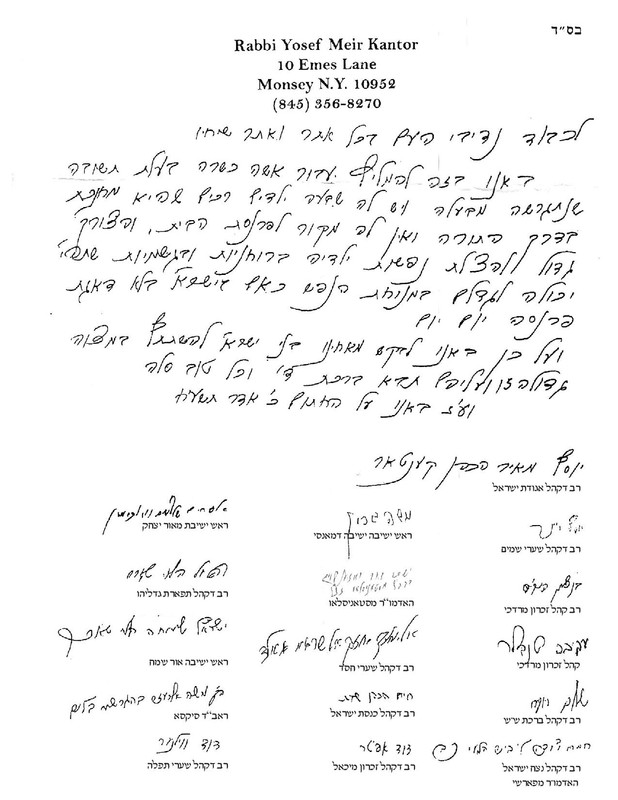 בס״ד
Rabbi Yosef Meir Kantor
10 Emes Lane
Monsey N.Y. 10952
(845) 356-8270
לכבוד נדיבי העם בכל אתר ואתר שיחיו
באנו בזה להמליץ עבור אשה כשרה בעלת תשובה
שנתגרשה מבעלה ויש לה שבעה ילדים רכים שהיא מחנכת
בדרך התורה ואין לה מקור לפרנסת הבית, והצורך
גדול להצלת נפשות ילדיה ברוחניות ובגשמיות שתהי׳
יכולה לגדלם במנוחת הנפש כאם בישראל בלא דאגת
פרנסה יום יום
ועל כן באנו לבקש מאחינו בני ישראל להשתתף במצוה
גדולה זו ועליהם תבא ברכת ד׳ וכל טוב סלה
וע״ז באנו על החתום כ׳ אדר תשע״ח
יוסף מאיר הכהן קענטאר
רב דקהל אגודת ישראל
ראש ישיבת מאור יצחק
משה גרין
ראש ישיבה ישיבה דמאנסי
רב דקהל שערי שמים
רב דקהל תפארת גדליהו
האדמו״ר מסטאניסלאו
רב קהל זכרון מרדכי
ישראל שמחה
ראש ישיבה אור שמח
רב דקהל שערי חסד
עקיבא
קהל זכרון מרדכי
בן משה
ראב״ד סיקסא
חיים הכהן
רב דקהל כנסת ישראל
שלום
רב דקהל ברכת ש״ש
דוד
רב דקהל שערי תפלה
דוד
רב דקהל זכרון מיכאל
הלוי
רב דקהל נצח ישראל
האדמו״ר מפארשי